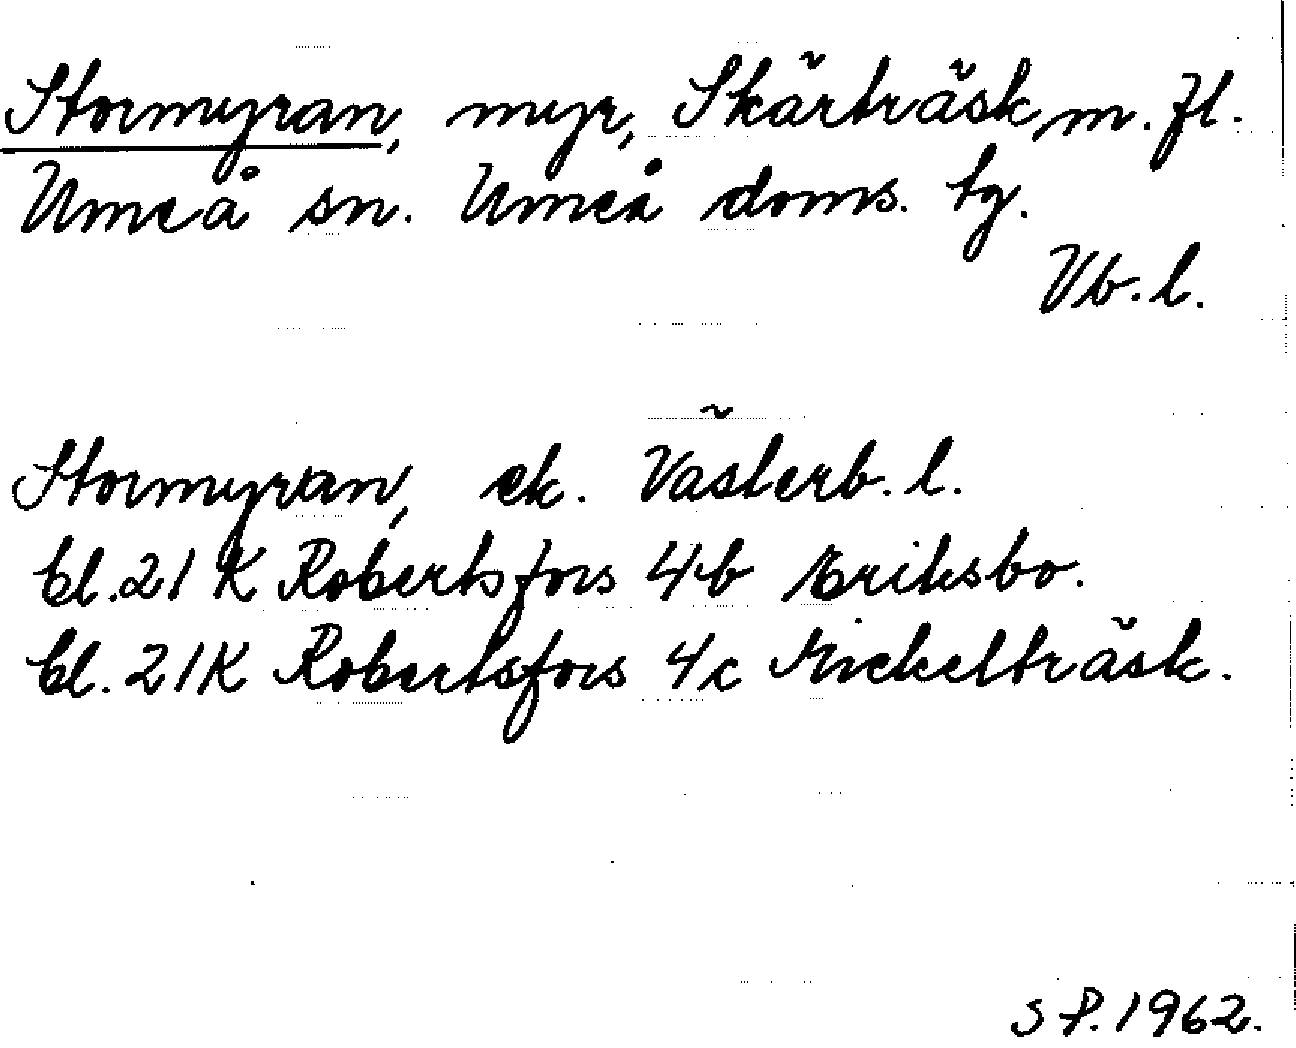 Stormyran, myr, Skärträsk, m. fl.
Umeå sn. Umeå doms. tg.
Vb. l.
Stormyran, ek. Västerb. l.
bl. 21 K Robertsfors 4b Eriksbo.
bl. 21K Robertsfors 4c Nickelträsk.
S P. 1962.